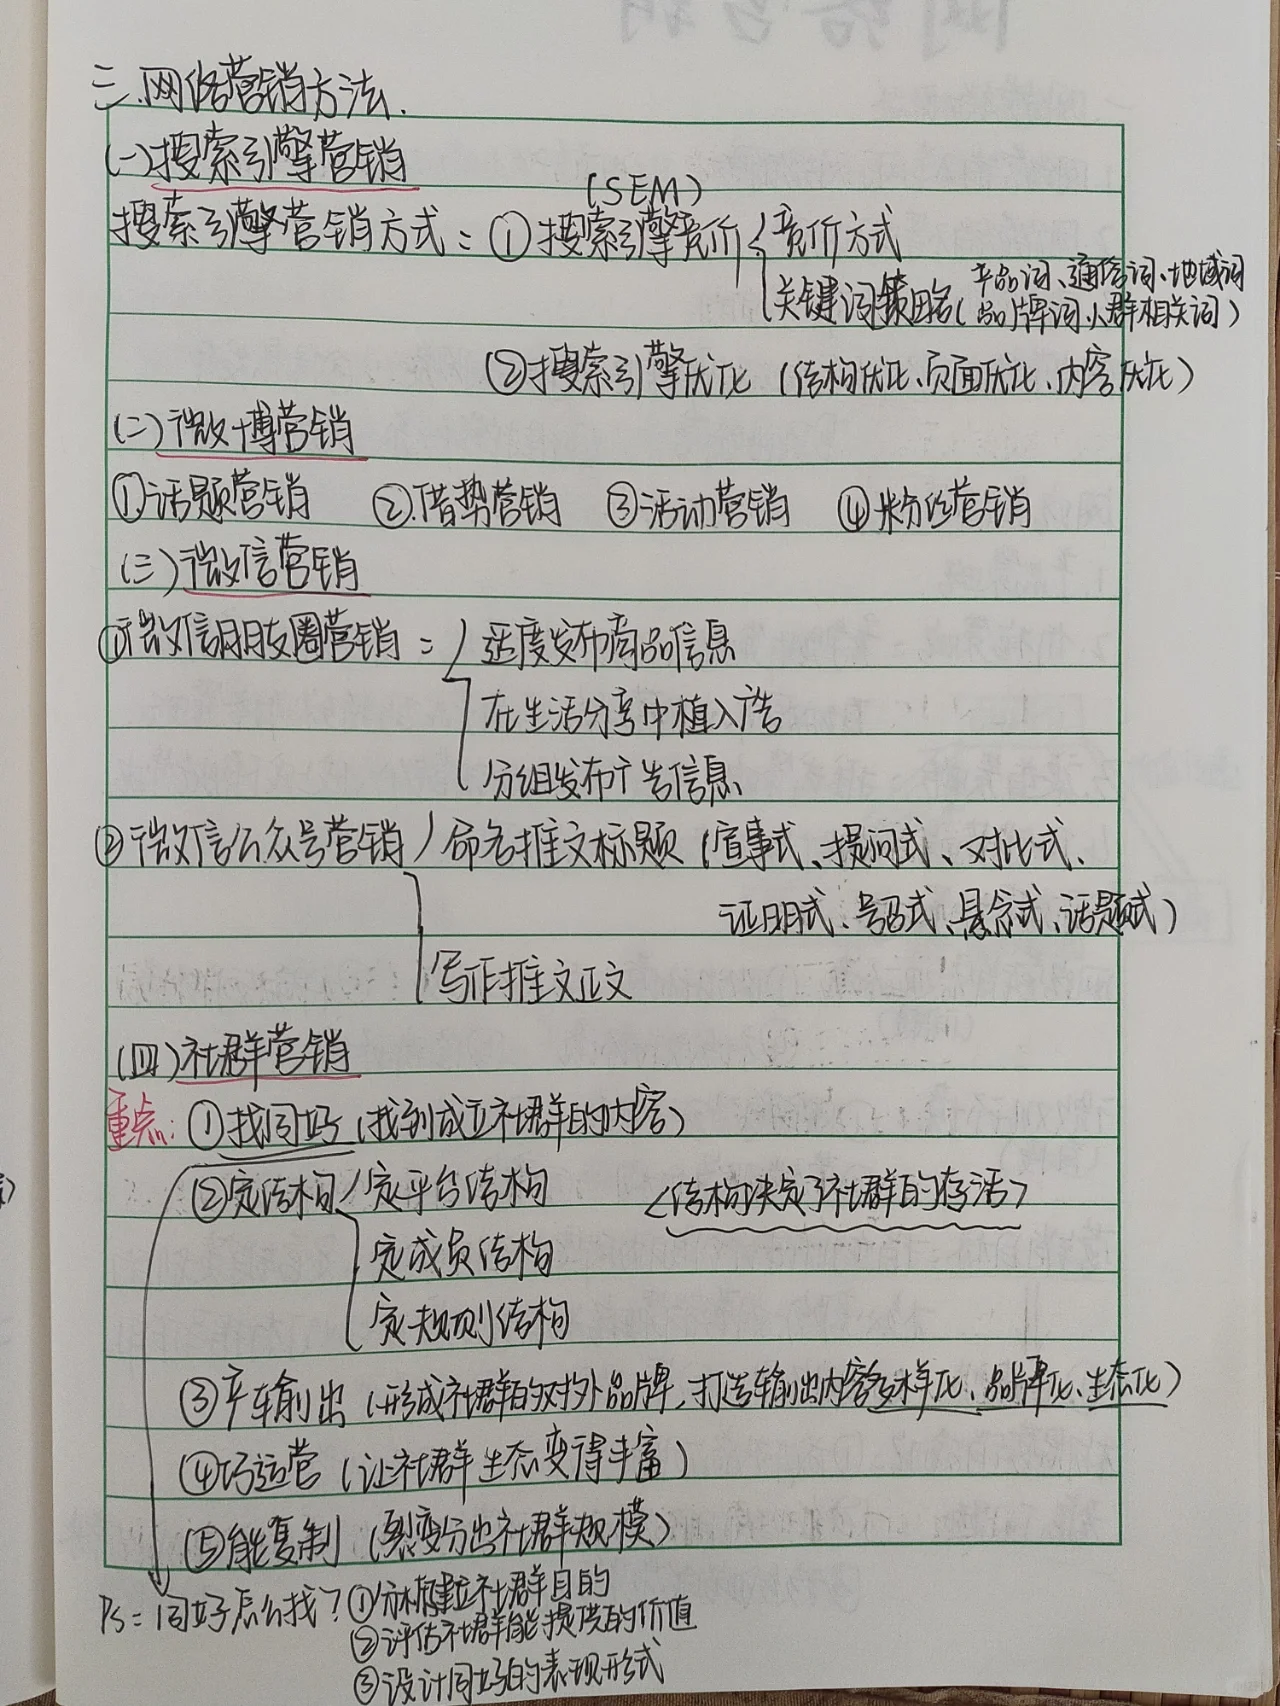 三.网络营销方法.
(一)搜索引擎营销
(SEM)
搜索引擎营销方式：①搜索引擎竞价 竞价方式
关键词策略(产品词、通俗词、地域词
品牌词、人群相关词)
②搜索引擎优化 (结构优化、页面优化、内容优化)
(二)微博营销
①话题营销 ②借势营销 ③活动营销 ④粉丝营销
(三)微信营销
①微信朋友圈营销： 适度发布商品信息
在生活分享中植入广告
分组发布广告信息
②微信公众号营销 命名推文标题(宣事式、提问式、对比式、
证明式、号码式、悬念式、话题式)
写作推文正文
(四)社群营销
重点：①找同好(找到成立社群的内容)
②定结构 定平台结构 <结构决定了社群的存活>
定成员结构
定规则结构
③产输出(形成社群的对外品牌,打造输出内容多样化、品牌化、生态化)
④巧运营(让社群生态变得丰富)
⑤能复制(裂变分出社群规模)
Ps=同好怎么找?①分析建立社群目的
②评估社群能提供的价值
③设计同好的表现形式